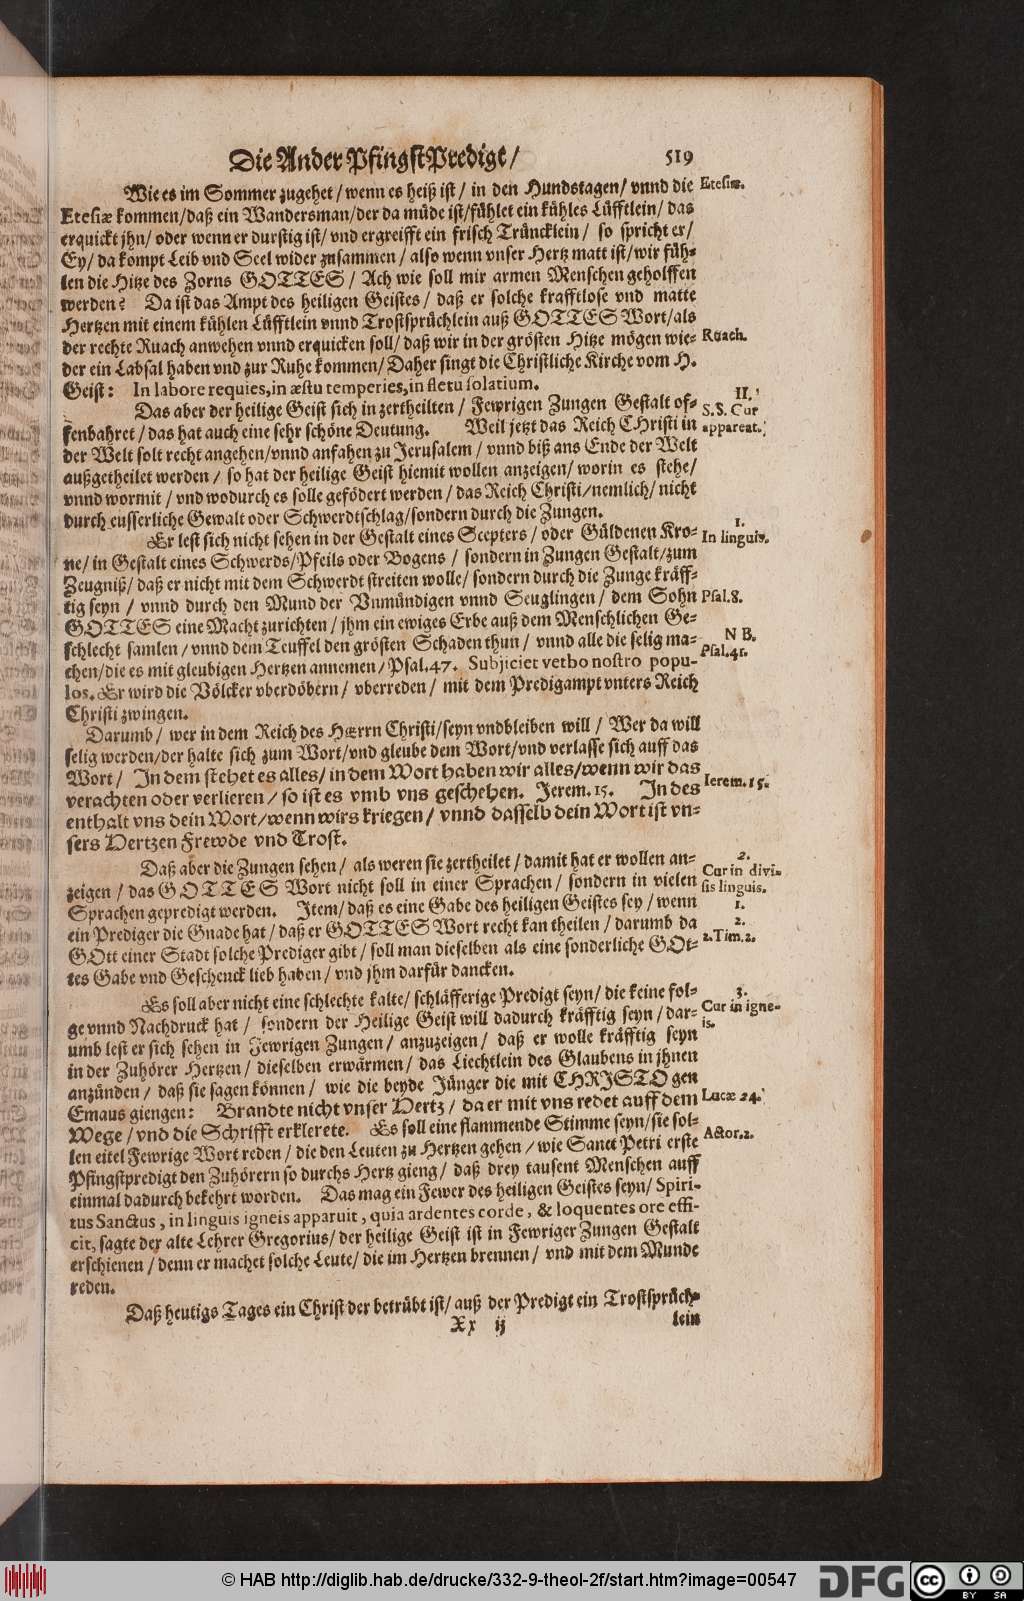 Die Ander PfingstPredigt / 519
Wie es im Sommer zugehet / wenn es heiß ist / in den Hundstagen / vnnd die
Etesiæ.
Etesiæ kommen / daß ein Wandersman / der da müde ist / fühlet ein kühles Lüfftlein / das
erquickt jhn / oder wenn er durstig ist / vnd ergreifft ein frisch Träncklein / so spricht er /
Ey / da kompt Leib vnd Seel wider zusammen / also wenn vnser Hertz matt ist / wir füh-
len die Hitze des Zorns GOTTES / Ach wie soll mir armen Menschen geholffen
werden? Da ist das Ampt des heiligen Geistes / daß er solche krafftlose vnd matte
Hertzen mit einem kühlen Lüfftlein vnnd Trostsprüchlein auß GOTTES Wort / als
der rechte Ruach anwehen vnnd erquicken soll / daß wir in der grösten Hitze mögen wie-
Ruach.
der ein Labsal haben vnd zur Ruhe kommen / Daher singt die Christliche Kirche vom H.
Geist: In labore requies, in æstu temperies, in fletu solatium.
Das aber der heilige Geist sich in zertheilten / Fewrigen Zungen Gestalt of-
II.
S.S. Cur
fenbahret / das hat auch eine sehr schöne Deutung. Weil jetzt das Reich CHristi in
appareat.
der Welt solt recht angehen / vnnd anfahen zu Jerusalem / vnnd biß ans Ende der Welt
außgetheilet werden / so hat der heilige Geist hiemit wollen anzeigen / worin es stehe /
vnnd wormit / vnd wodurch es solle gefödert werden / das Reich Christi / nemlich / nicht
durch eusserliche Gewalt oder Schwerdtschlag / sondern durch die Zungen.
1.
Er lest sich nicht sehen in der Gestalt eines Scepters / oder Güldenen Kro-
In linguis.
ne / in Gestalt eines Schwerds / Pfeils oder Bogens / sondern in Zungen Gestalt / zum
Zeugniß / daß er nicht mit dem Schwerdt streiten wolle / sondern durch die Zunge kräff-
tig seyn / vnnd durch den Mund der Vnmündigen vnnd Seuglingen / dem Sohn
Psal. 8.
GOTTES eine Macht zurichten / jhm ein ewiges Erbe auß dem Menschlichen Ge-
schlecht samlen / vnnd dem Teuffel den grösten Schaden thun / vnnd alle die selig ma-
NB.
Psal. 41.
chen / die es mit gleubigen Hertzen annemen / Psal. 47. Subjiciet verbo nostro popu-
los. Er wird die Völcker vberdöbern / vberreden / mit dem Predigampt vnters Reich
Christi zwingen.
Darumb / wer in dem Reich des HErrn Christi / seyn vnd bleiben will / Wer da will
selig werden / der halte sich zum Wort / vnd gleube dem Wort / vnd verlasse sich auff das
Wort / In dem stehet es alles / in dem Wort haben wir alles / wenn wir das
verachten oder verlieren / so ist es vmb vns geschehen. Jerem. 15. In des
Ierem. 15.
enthalt vns dein Wort / wenn wirs kriegen / vnnd dasselb dein Wort ist vn-
sers Hertzen Frewde vnd Trost.
Daß aber die Zungen sehen / als weren sie zertheilet / damit hat er wollen an-
2.
Cur in divi-
zeigen / das GOTTES Wort nicht soll in einer Sprachen / sondern in vielen
sis linguis.
Sprachen gepredigt werden. Item / daß es eine Gabe des heiligen Geistes sey / wenn
1.
ein Prediger die Gnade hat / daß er GOTTES Wort recht kan theilen / darumb da
2.
2. Tim. 2.
GOtt einer Stadt solche Prediger gibt / soll man dieselben als eine sonderliche GOt-
tes Gabe vnd Geschenck lieb haben / vnd jhm darfür dancken.
Es soll aber nicht eine schlechte kalte / schläfferige Predigt seyn / die keine fol-
3.
Cur in igne-
ge vnnd Nachdruck hat / sondern der Heilige Geist will dadurch kräfftig seyn / dar-
is.
umb lest er sich sehen in Fewrigen Zungen / anzuzeigen / daß er wolle kräfftig seyn
in der Zuhörer Hertzen / dieselben erwärmen / das Liechtlein des Glaubens in jhnen
anzünden / daß sie sagen können / wie die beyde Jünger die mit CHRISTO gen
Emaus giengen: Brandte nicht vnser Hertz / da er mit vns redet auff dem
Lucæ 24.
Wege / vnd die Schrifft erklerete. Es soll eine flammende Stimme seyn / sie sol-
Actor. 2.
len eitel Fewrige Wort reden / die den Leuten zu Hertzen gehen / wie Sanct Petri erste
Pfingstpredigt den Zuhörern so durchs Hertz gieng / daß drey tausent Menschen auff
einmal dadurch bekehrt worden. Das mag ein Fewer des heiligen Geistes seyn / Spiri-
tus Sanctus, in linguis igneis apparuit, quia ardentes corde, & loquentes ore effi-
cit, sagte der alte Lehrer Gregorius / der heilige Geist ist in Fewriger Zungen Gestalt
erschienen / denn er machet solche Leute / die im Hertzen brennen / vnd mit dem Munde
reden.
Daß heutigs Tages ein Christ der betrübt ist / auß der Predigt ein Trostsprüch-
Xx ij lein
© HAB http://diglib.hab.de/drucke/332-9-theol-2f/start.htm?image=00547
DFG
cc BY SA